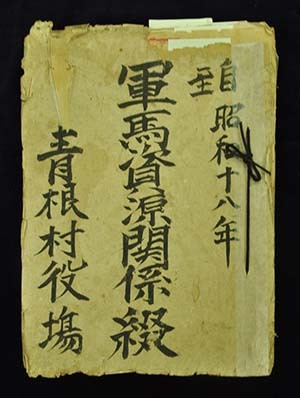 自
至 昭和十八年
軍馬資源関係綴
青根村役場